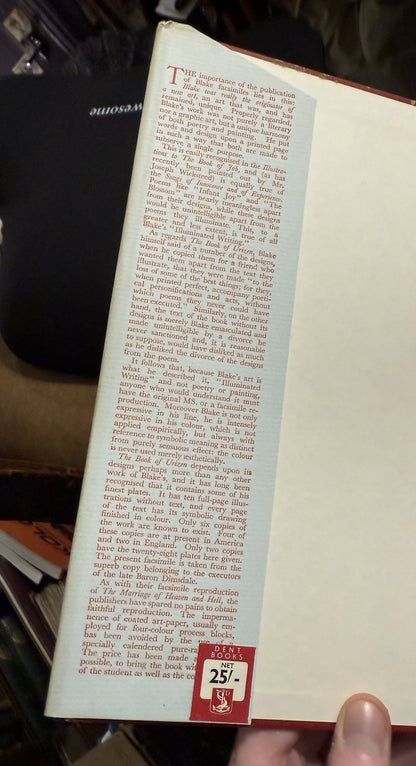 awesome
THE importance of the publication
of Blake facsimiles lies in this:
Blake was really the originator of
a new art, an art that was, and has
remained, unique. Properly regarded,
Blake's work was not purely a literary
nor a graphic art, but a unique harmony
of both poetry and painting. He put
words and design upon a printed page
in such a way that both are made to
subserve a single purpose.
This is easily recognised in the Illustra-
tions to The Book of Job, and (as has
recently been pointed out by Mr.
Joseph Wicksteed) is equally true of
the Songs of Innocence and of Experience.
Poems like "Infant Joy" and "The
Blossom" are nearly meaningless apart
from their designs, while these designs
would be unintelligible apart from the
poems they illuminate. This, to a
greater and less extent, is true of all
Blake's "Illuminated Writing."
As regards The Book of Urizen, Blake
himself said of a number of the designs,
when he copied them for a friend who
wanted them apart from the text they
illustrate, that they were made "to the
loss of some of the best things; for they,
when printed perfect, accompany poeti-
cal personifications and acts, without
which poems they never could have
been executed." Similarly, on the other
hand, the text of the book without its
designs is merely Blake emasculated and
made unintelligible by a divorce he
never sanctioned and, it is reasonable
to suppose, would have disliked as much
as he disliked the divorce of the designs
from the poem.
It follows that, because Blake's art is
what he described it, "Illuminated
Writing" and not poetry or painting,
anyone who would understand it must
have the original MS. or a facsimile re-
production. Moreover Blake is not only
expressive in his line, he is intensely
expressive in his colour, which is not
applied empirically, but always with
reference to symbolic meaning as distinct
from purely sensuous effect: the colour
is never used merely æsthetically.
The Book of Urizen depends upon its
designs perhaps more than any other
work of Blake's, and it has long been
recognised that it contains some of his
finest plates. It has ten full-page illus-
trations without text, and every page
of the text has its symbolic drawing
finished in colour. Only six copies of
the work are known to exist. Four of
these copies are at present in America
and two in England. Only two copies
have the twenty-eight plates here given.
The present facsimile is taken from the
superb copy belonging to the executors
of the late Baron Dimsdale.
As with their facsimile reproduction
of The Marriage of Heaven and Hell, the
publishers have spared no pains to obtain
faithful reproduction. The imperma-
nence of coated art-paper, usually em-
ployed for four-colour process blocks,
has been avoided by the use of a
specially calendered pure-ra
The price has been made
possible, to bring the book wi
of the student as well as the co
DENT
BOOKS
NET
25/-